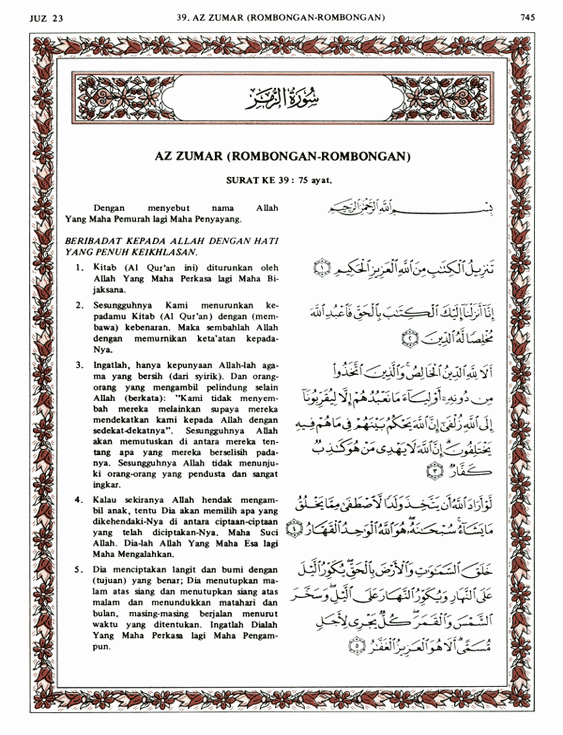 JUZ 23
39. AZ ZUMAR (ROMBONGAN-ROMBONGAN)
745
سُورَةُ الزُّمَرِ
AZ ZUMAR (ROMBONGAN-ROMBONGAN)
SURAT KE 39 : 75 ayat.
Dengan menyebut nama Allah
Yang Maha Pemurah lagi Maha Penyayang.
بِسْــــــمِ اللَّهِ الرَّحْمَٰنِ الرَّحِيمِ
BERIBADAT KEPADA ALLAH DENGAN HATI
YANG PENUH KEIKHLASAN.
1. Kitab (Al Qur'an ini) diturunkan oleh
Allah Yang Maha Perkasa lagi Maha Bi-
jaksana.
تَنْزِيلُ الْكِتَٰبِ مِنَ اللَّهِ الْعَزِيزِ الْحَكِيمِ ﴿١﴾
2. Sesungguhnya Kami menurunkan ke-
padamu Kitab (Al Qur'an) dengan (mem-
bawa) kebenaran. Maka sembahlah Allah
dengan memurnikan keta'atan kepada-
Nya.
إِنَّا أَنْزَلْنَا إِلَيْكَ الْكِتَٰبَ بِالْحَقِّ فَاعْبُدِ اللَّهَ
مُخْلِصًا لَهُ الدِّينَ ﴿٢﴾
3. Ingatlah, hanya kepunyaan Allah-lah aga-
ma yang bersih (dari syirik). Dan orang-
orang yang mengambil pelindung selain
Allah (berkata): "Kami tidak menyem-
bah mereka melainkan supaya mereka
mendekatkan kami kepada Allah dengan
sedekat-dekatnya". Sesungguhnya Allah
akan memutuskan di antara mereka ten-
tang apa yang mereka berselisih pada-
nya. Sesungguhnya Allah tidak menunju-
ki orang-orang yang pendusta dan sangat
ingkar.
أَلَا لِلَّهِ الدِّينُ الْخَالِصُ وَالَّذِينَ اتَّخَذُوا
مِنْ دُونِهِ أَوْلِيَاءَ مَا نَعْبُدُهُمْ إِلَّا لِيُقَرِّبُونَا
إِلَى اللَّهِ زُلْفَىٰ إِنَّ اللَّهَ يَحْكُمُ بَيْنَهُمْ فِي مَا هُمْ فِيهِ
يَخْتَلِفُونَ إِنَّ اللَّهَ لَا يَهْدِي مَنْ هُوَ كَٰذِبٌ
كَفَّارٌ ﴿٣﴾
4. Kalau sekiranya Allah hendak mengam-
bil anak, tentu Dia akan memilih apa yang
dikehendaki-Nya di antara ciptaan-ciptaan
yang telah diciptakan-Nya. Maha Suci
Allah. Dia-lah Allah Yang Maha Esa lagi
Maha Mengalahkan.
لَوْ أَرَادَ اللَّهُ أَنْ يَتَّخِذَ وَلَدًا لَاصْطَفَىٰ مِمَّا يَخْلُقُ
مَا يَشَاءُ سُبْحَٰنَهُ هُوَ اللَّهُ الْوَٰحِدُ الْقَهَّارُ ﴿٤﴾
5. Dia menciptakan langit dan bumi dengan
(tujuan) yang benar; Dia menutupkan ma-
lam atas siang dan menutupkan siang atas
malam dan menundukkan matahari dan
bulan, masing-masing berjalan menurut
waktu yang ditentukan. Ingatlah Dialah
Yang Maha Perkasa lagi Maha Pengam-
pun.
خَلَقَ السَّمَٰوَٰتِ وَالْأَرْضَ بِالْحَقِّ يُكَوِّرُ الَّيْلَ
عَلَى النَّهَارِ وَيُكَوِّرُ النَّهَارَ عَلَى الَّيْلِ وَسَخَّرَ
الشَّمْسَ وَالْقَمَرَ كُلٌّ يَجْرِي لِأَجَلٍ
مُسَمًّى أَلَا هُوَ الْعَزِيزُ الْغَفَّٰرُ ﴿٥﴾